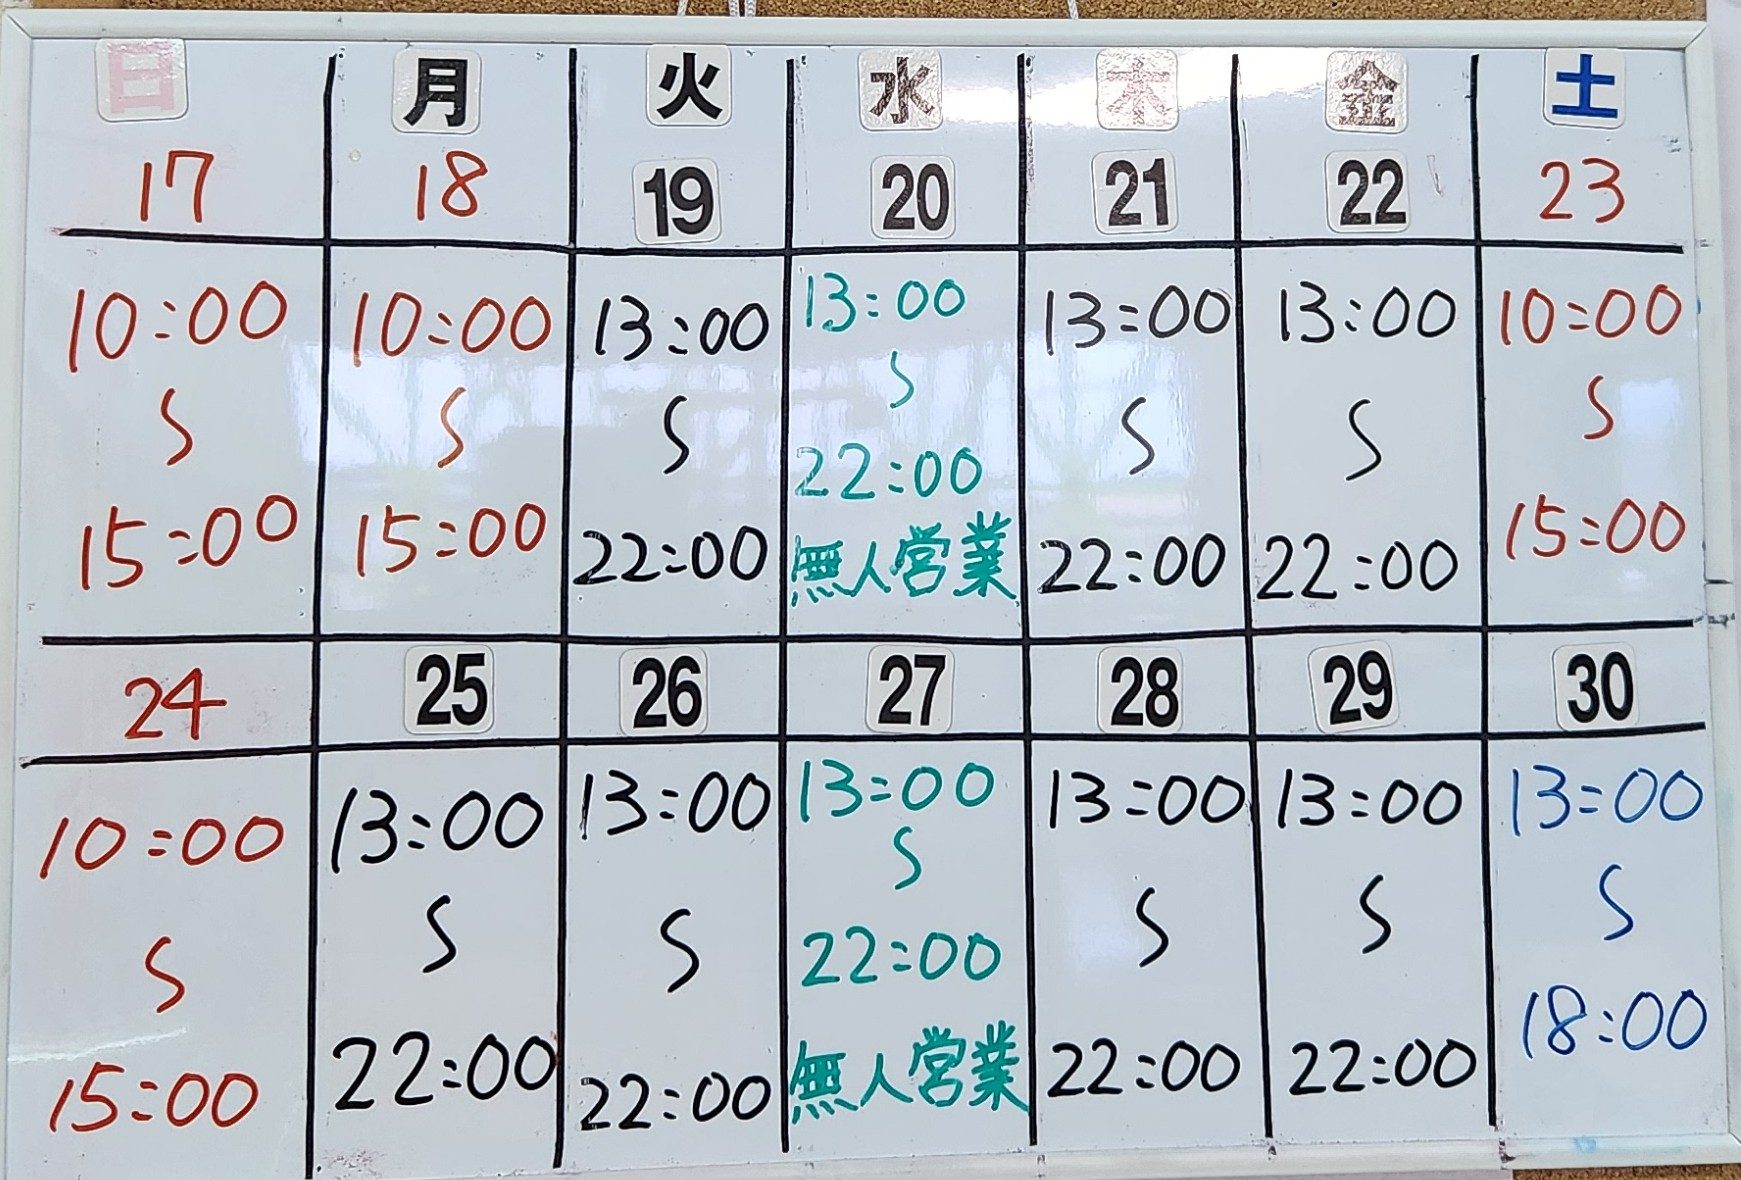 日 月 火 水 木 金 土
17 18 19 20 21 22 23
10:00 10:00 13:00 13:00 13:00 13:00 10:00
S S S S S S S
15:00 15:00 22:00 22:00 22:00 22:00 15:00
無人営業
24 25 26 27 28 29 30
10:00 13:00 13:00 13:00 13:00 13:00 13:00
S S S S S S S
15:00 22:00 22:00 22:00 22:00 22:00 18:00
無人営業